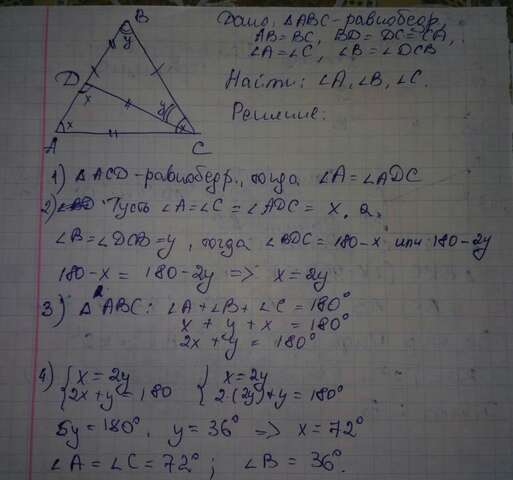 B
y
D
x
y
x
x
A
C
Дано: △ABC - равнобедр.
AB = BC, BD = DC = CA,
∠A = ∠C, ∠B = ∠DCB
Найти: ∠A, ∠B, ∠C.
Решение:
1) △ACD - равнобедр., тогда ∠A = ∠ADC
2) Пусть ∠A = ∠C = ∠ADC = x, а,
∠B = ∠DCB = y, тогда ∠BDC = 180 - x или 180 - 2y
180 - x = 180 - 2y => x = 2y
3) △ ABC: ∠A + ∠B + ∠C = 180°
x + y + x = 180°
2x + y = 180°
4) { x = 2y { x = 2y
{ 2x + y = 180 { 2·(2y) + y = 180°
5y = 180°, y = 36° => x = 72°
∠A = ∠C = 72°; ∠B = 36°.